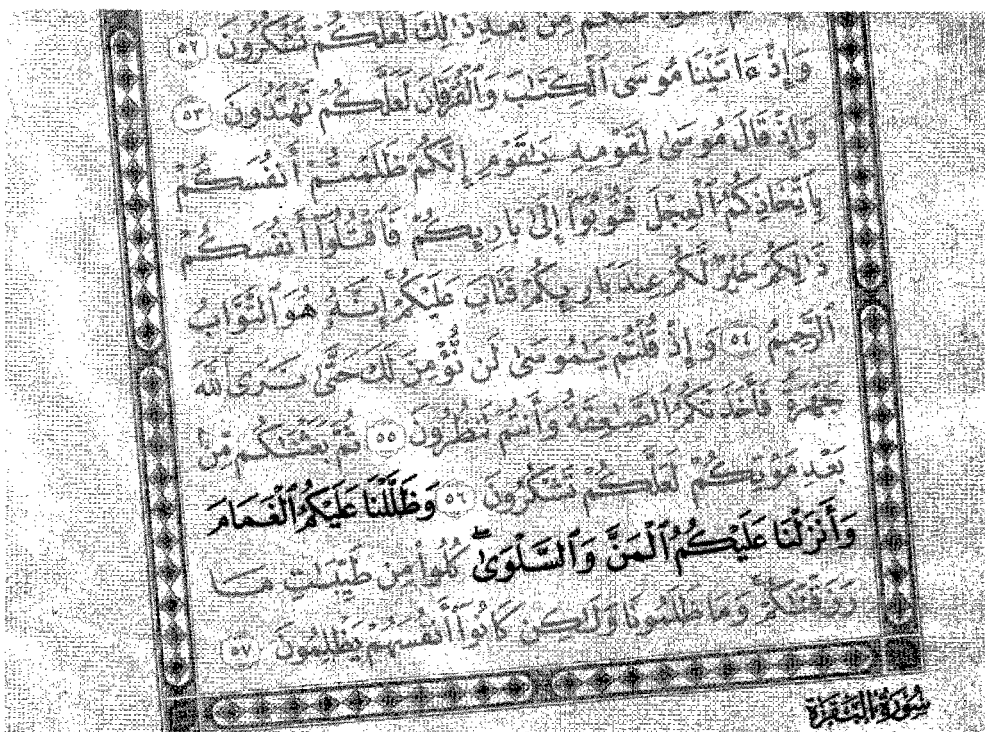 عَنكُم مِّنۢ بَعْدِ ذَٰلِكَ لَعَلَّكُمْ تَشْكُرُونَ ٥٢
وَإِذْ ءَاتَيْنَا مُوسَى ٱلْكِتَٰبَ وَٱلْفُرْقَانَ لَعَلَّكُمْ تَهْتَدُونَ ٥٣
وَإِذْ قَالَ مُوسَىٰ لِقَوْمِهِۦ يَٰقَوْمِ إِنَّكُمْ ظَلَمْتُمْ أَنفُسَكُم
بِٱتِّخَاذِكُمُ ٱلْعِجْلَ فَتُوبُوٓا۟ إِلَىٰ بَارِئِكُمْ فَٱقْتُلُوٓا۟ أَنفُسَكُمْ
ذَٰلِكُمْ خَيْرٌ لَّكُمْ عِندَ بَارِئِكُمْ فَتَابَ عَلَيْكُمْ إِنَّهُۥ هُوَ ٱلتَّوَّابُ
ٱلرَّحِيمُ ٥٤ وَإِذْ قُلْتُمْ يَٰمُوسَىٰ لَن نُّؤْمِنَ لَكَ حَتَّىٰ نَرَى ٱللَّهَ
جَهْرَةً فَأَخَذَتْكُمُ ٱلصَّٰعِقَةُ وَأَنتُمْ تَنظُرُونَ ٥٥ ثُمَّ بَعَثْنَٰكُم مِّنۢ
بَعْدِ مَوْتِكُمْ لَعَلَّكُمْ تَشْكُرُونَ ٥٦ وَظَلَّلْنَا عَلَيْكُمُ ٱلْغَمَامَ
وَأَنزَلْنَا عَلَيْكُمُ ٱلْمَنَّ وَٱلسَّلْوَىٰ ۖ كُلُوا۟ مِن طَيِّبَٰتِ مَا
رَزَقْنَٰكُمْ ۖ وَمَا ظَلَمُونَا وَلَٰكِن كَانُوٓا۟ أَنفُسَهُمْ يَظْلِمُونَ ٥٧
سُورَةُ ٱلْبَقَرَةِ